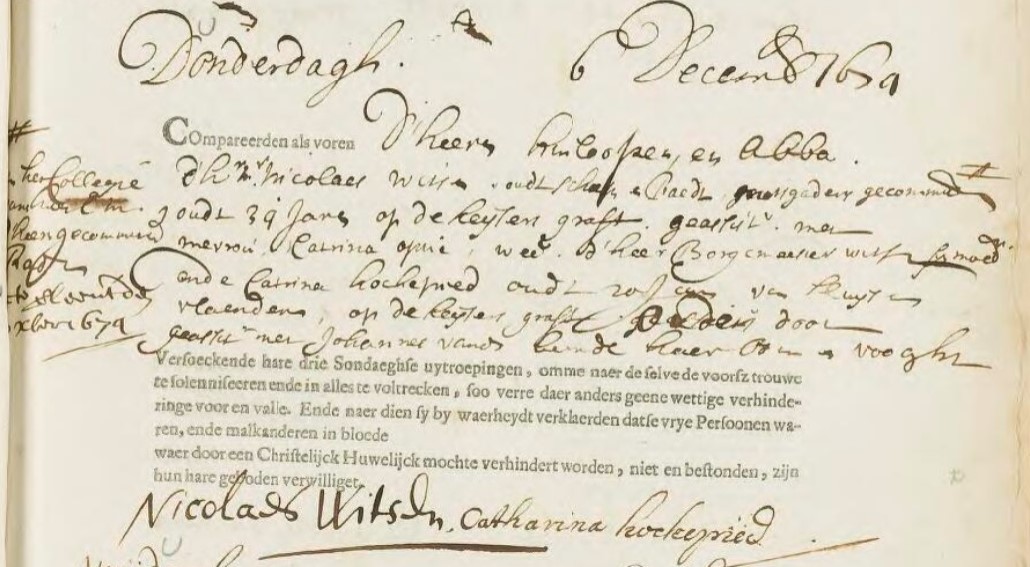 Donderdagh. 6 Decemb 1674
Compareerden als voren d'heeren en Abba.
d'hr. mr. Nicolaes Witsen oudt Schepen Raedt
oudt 34 Jaren op de keysers graft geassist met
mevrou Catrina opsie, wede. d'heer Borgemeester witsen sijn moedr.
ende Catrina hochepied oudt 20 Jaren van
vlaenderen, op de keysers graft ouders doot
geassist met Johannes haer Oom en vooght
her Collegie
gecommitt
Raden
1674
Versoeckende hare drie Sondaeghse uytroepingen, omme naer de selve de voorsz trouwe
te solenniseeren ende in alles te voltrecken, soo verre daer anders geene wettige verhinde-
ringe voor en valle. Ende naer dien sy by waerheydt verklaerden datse vrye Persoonen wa-
ren, ende malkanderen in bloede
waer door een Christelijck Huwelijck mochte verhindert worden, niet en bestonden, zijn
hun hare geboden verwilliget.
Nicolaes Witsen. Catharina hochepied